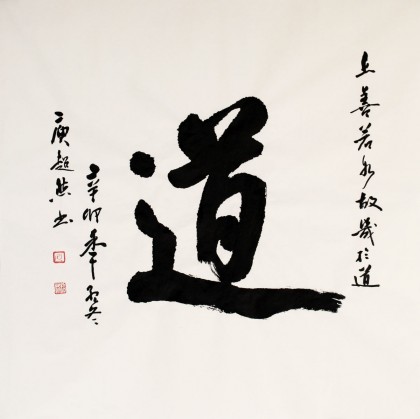 上善若水故幾於道
道
辛卯年冬
超然书